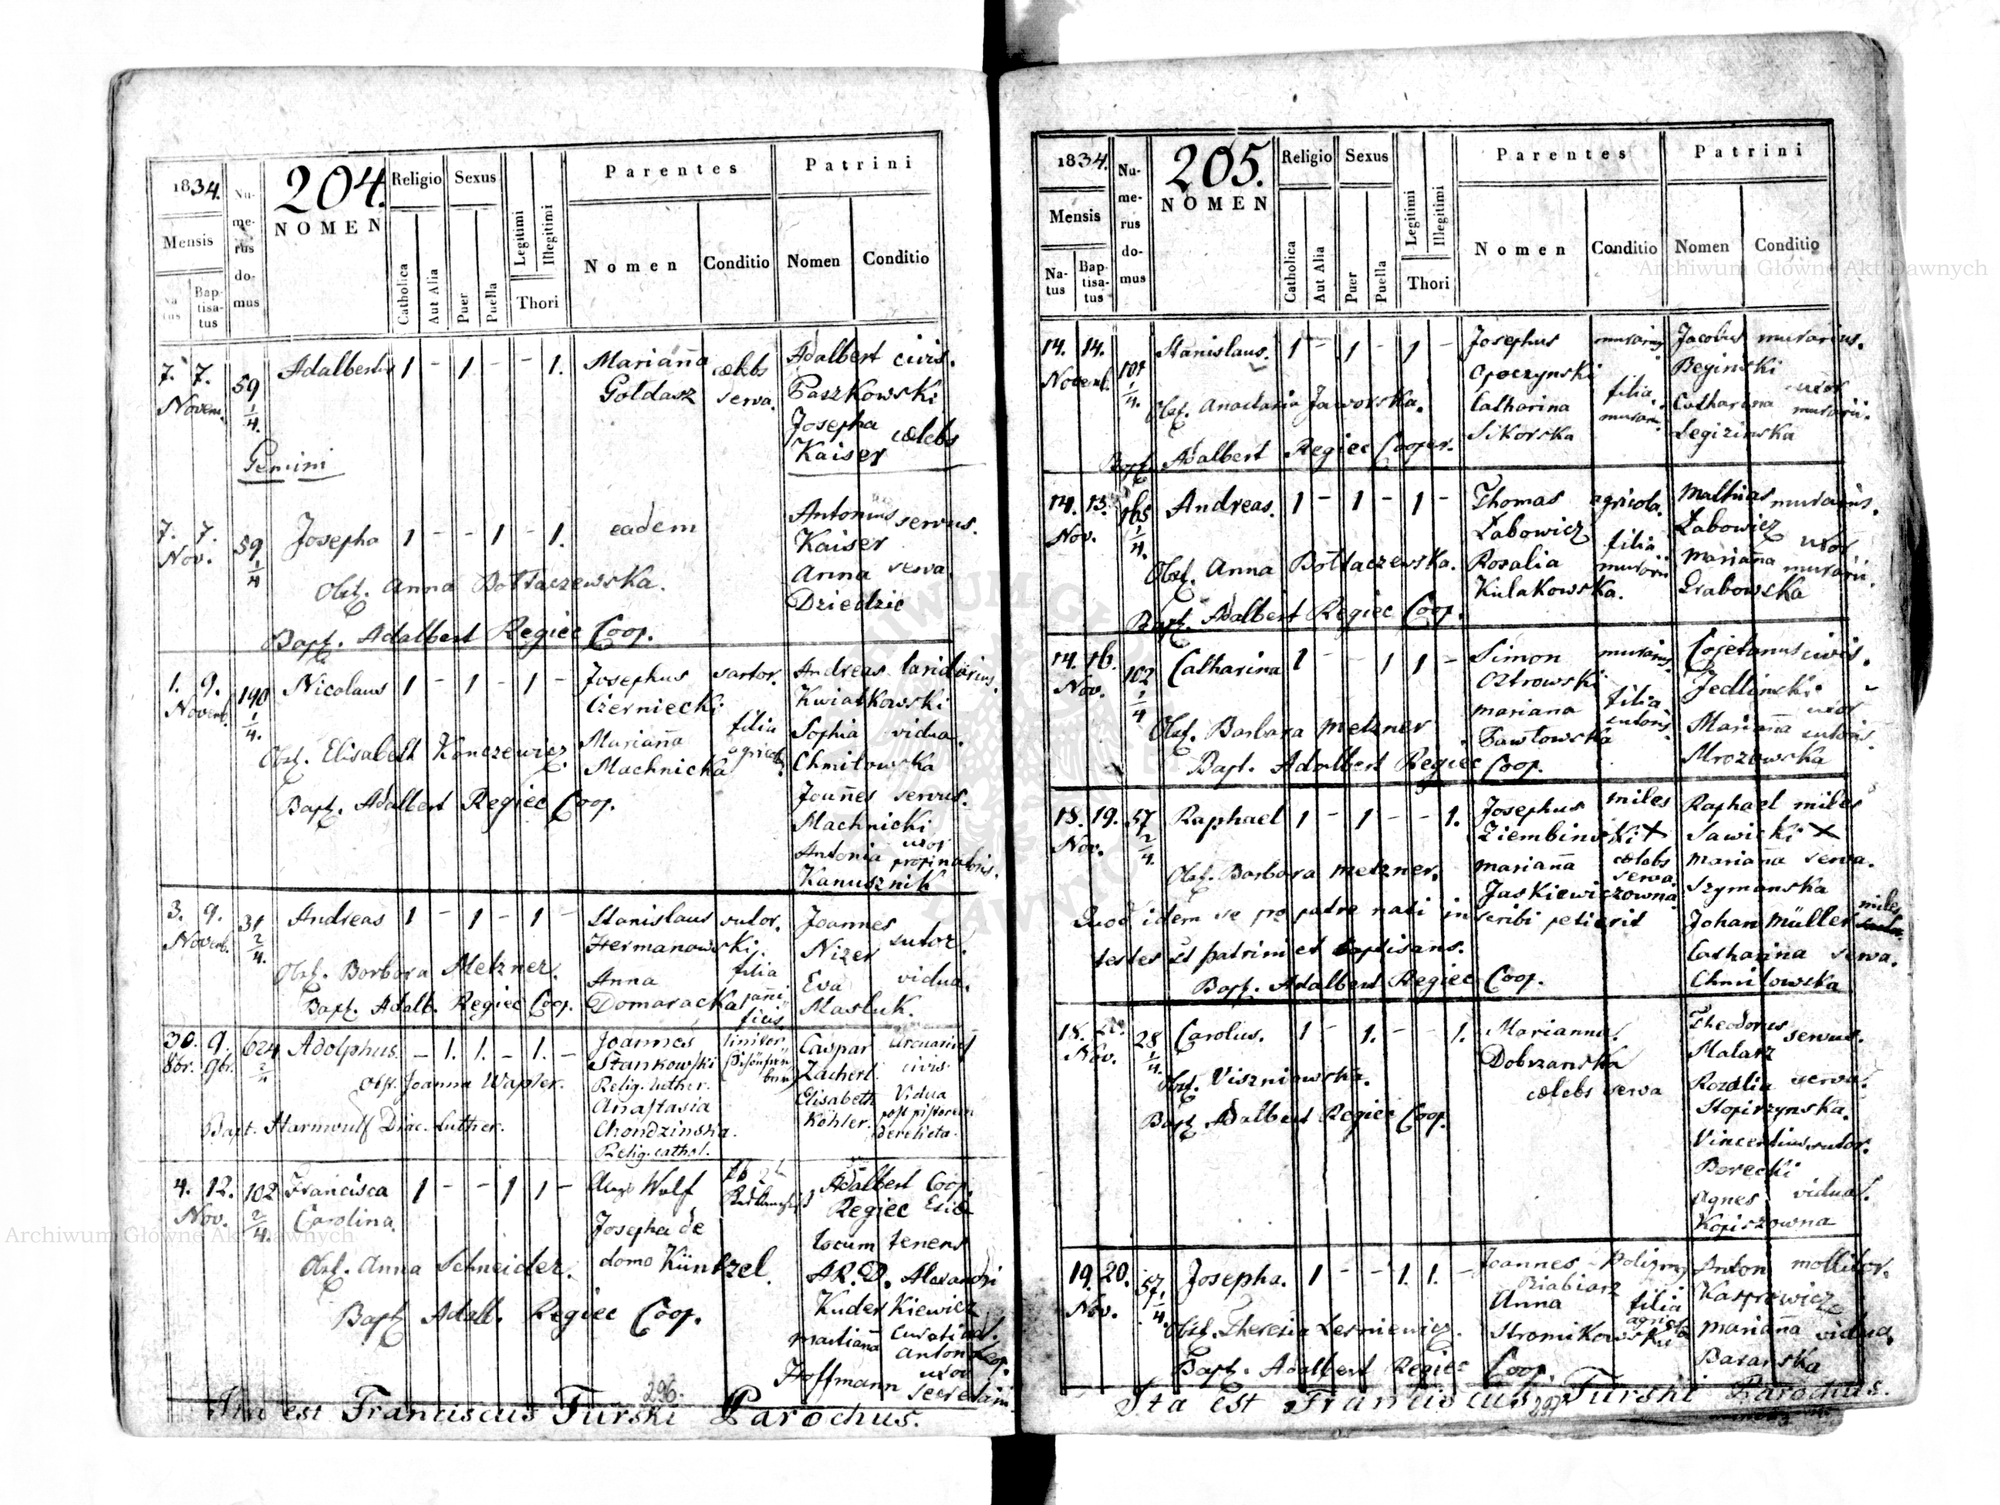 204.
1834.
Mensis
Na-
tus
Bap-
tisa-
tus
Nu-
me-
rus
do-
mus
NOMEN
Religio
Catholica
Aut Alia
Sexus
Puer
Puella
Legitimi
Illegitimi
Thori
Parentes
Nomen
Conditio
Patrini
Nomen
Conditio
7. 7. 59 Adalbertus 1 - 1 - - 1. Marianna cælebs Adalbert civis.
Novem. 1/4. Goldasz serva. Paszkowski
Josepha cælebs
Kaiser
Gemini
7. 7. 59 Josepha 1 - - 1 - 1. eadem Antonius servus.
Nov. 1/4 Kaiser
Anna serva.
Obst. Anna Bołtaczewska. Dziedzic
Bapt. Adalbert Regiec Coop.
1. 9. 190 Nicolaus 1 - 1 - 1 - Josephus sartor. Andreas laridarius.
Novemb. 1/4. Czerniecki Kwiatkowski
Marianna filia Sophia vidua.
Obst. Elisabeth Konczewicz. Machnicka agricolæ Chmitowska
Bapt. Adalbert Regiec Coop. Joannes servus.
Machnicki
Antonia uxor propinatoris.
Kanusznik
3. 9. 31 Andreas 1 - 1 - 1 - Stanislaus sutor. Joannes
Novemb. 2/4. Hermanowski. Nizer sutor.
Obst. Barbara Metzner. Anna filia Eva vidua.
Bapt. Adalb. Regiec Coop. Domaracka Masluk.
30. 9. 624 Adolphus. - 1. 1. - 1. - Joannes Caspar
8br. 9br. 2/4 Stankowski Zacherl. civis.
Obst. Joanna Wapler. Relig. luther. Elisabeth Vidua
Anastasia Köhler. post pistorem
Bapt. Harmwulf Diac. Luther. Chondzinska. derelicta.
Relig. cathol.
4. 12. 102 Francisca 1 - - 1 1 - Wolf Adalbert Coop.
Nov. 2/4. Carolina. Josepha de Regiec
domo Küntzel. locum tenens
Obst. Anna Schneider. A.R.D. Alexandri
Bapt. Adalb. Regiec Coop. Kuderkiewicz
Marianna
Hoffmann uxor
296.
Ita est Franciscus Turski Parochus.
205.
1834.
Mensis
Na-
tus
Bap-
tisa-
tus
Nu-
me-
rus
do-
mus
NOMEN
Religio
Catholica
Aut Alia
Sexus
Puer
Puella
Legitimi
Illegitimi
Thori
Parentes
Nomen
Conditio
Patrini
Nomen
Conditio
14. 14. Stanislaus. 1 - 1 - 1 - Josephus murarius Jacobus murarius.
Novemb. 1/4. Opoczynski Beginski
Obst. Anastasia Jaworska. Catharina filia Catharina uxor
Sikorska murarii Legizinska murarii.
Bapt. Adalbert Regiec Cooper.
14. 15. 165 Andreas. 1 - 1 - 1 - Thomas agricola. Mathias murarius.
Nov. 1/4. Łabowicz Łabowicz
Obst. Anna Bołtaczewska. Rosalia filia Marianna uxor
Kulakowska. murarii Grabowska murarii.
Bapt. Adalbert Regiec Coop.
14. 16. 102 Catharina 1 - - 1 1 - Simon murarius. Cajetanus civis.
Nov. 1/4 Ostrowski Jedlinski
Obst. Barbara Metzner Mariana filia Marianna uxor
Pawłowska sutoris. Mrozowska sutoris.
Bapt. Adalbert Regiec Coop.
18. 19. 57 Raphael 1 - 1 - - 1. Josephus miles Raphael miles
Nov. 2/4. Ziembinski X Sawicki X
Obst. Barbara Metzner. Marianna cælebs serva Marianna serva.
Jaskiewiczowna Szymanska
Quod idem se pro patre nati inscribi petierit Johan Müller miles
testes et patrini et baptisans. Catharina serva.
Bapt. Adalbert Regiec Coop. Chmilowska
18. 28 Carolus. 1 - 1. - - 1. Marianna Theodorus servus.
Nov. 1/4. Dobrzanska Malarz
Obst. Viszniowska. cælebs serva Rozalia serva.
Bapt. Adalbert Regiec Coop. Stopirzynska.
Vincentius sutor.
Borecki
Agnes vidua.
Kopiszowna
19. 20. 57. Josepha. 1 - - 1. 1. - Joannes Anton mollitor.
Nov. 1/4. Riabiarz Kasprowicz
Obst. Theresia Lesniewicz. Anna filia Marianna vidua.
Stromikowski Baranska
Bapt. Adalbert Regiec Coop.
297
Ita est Franciscus Turski Parochus.
Archiwum Główne Akt Dawnych
Archiwum Główne Akt Dawnych